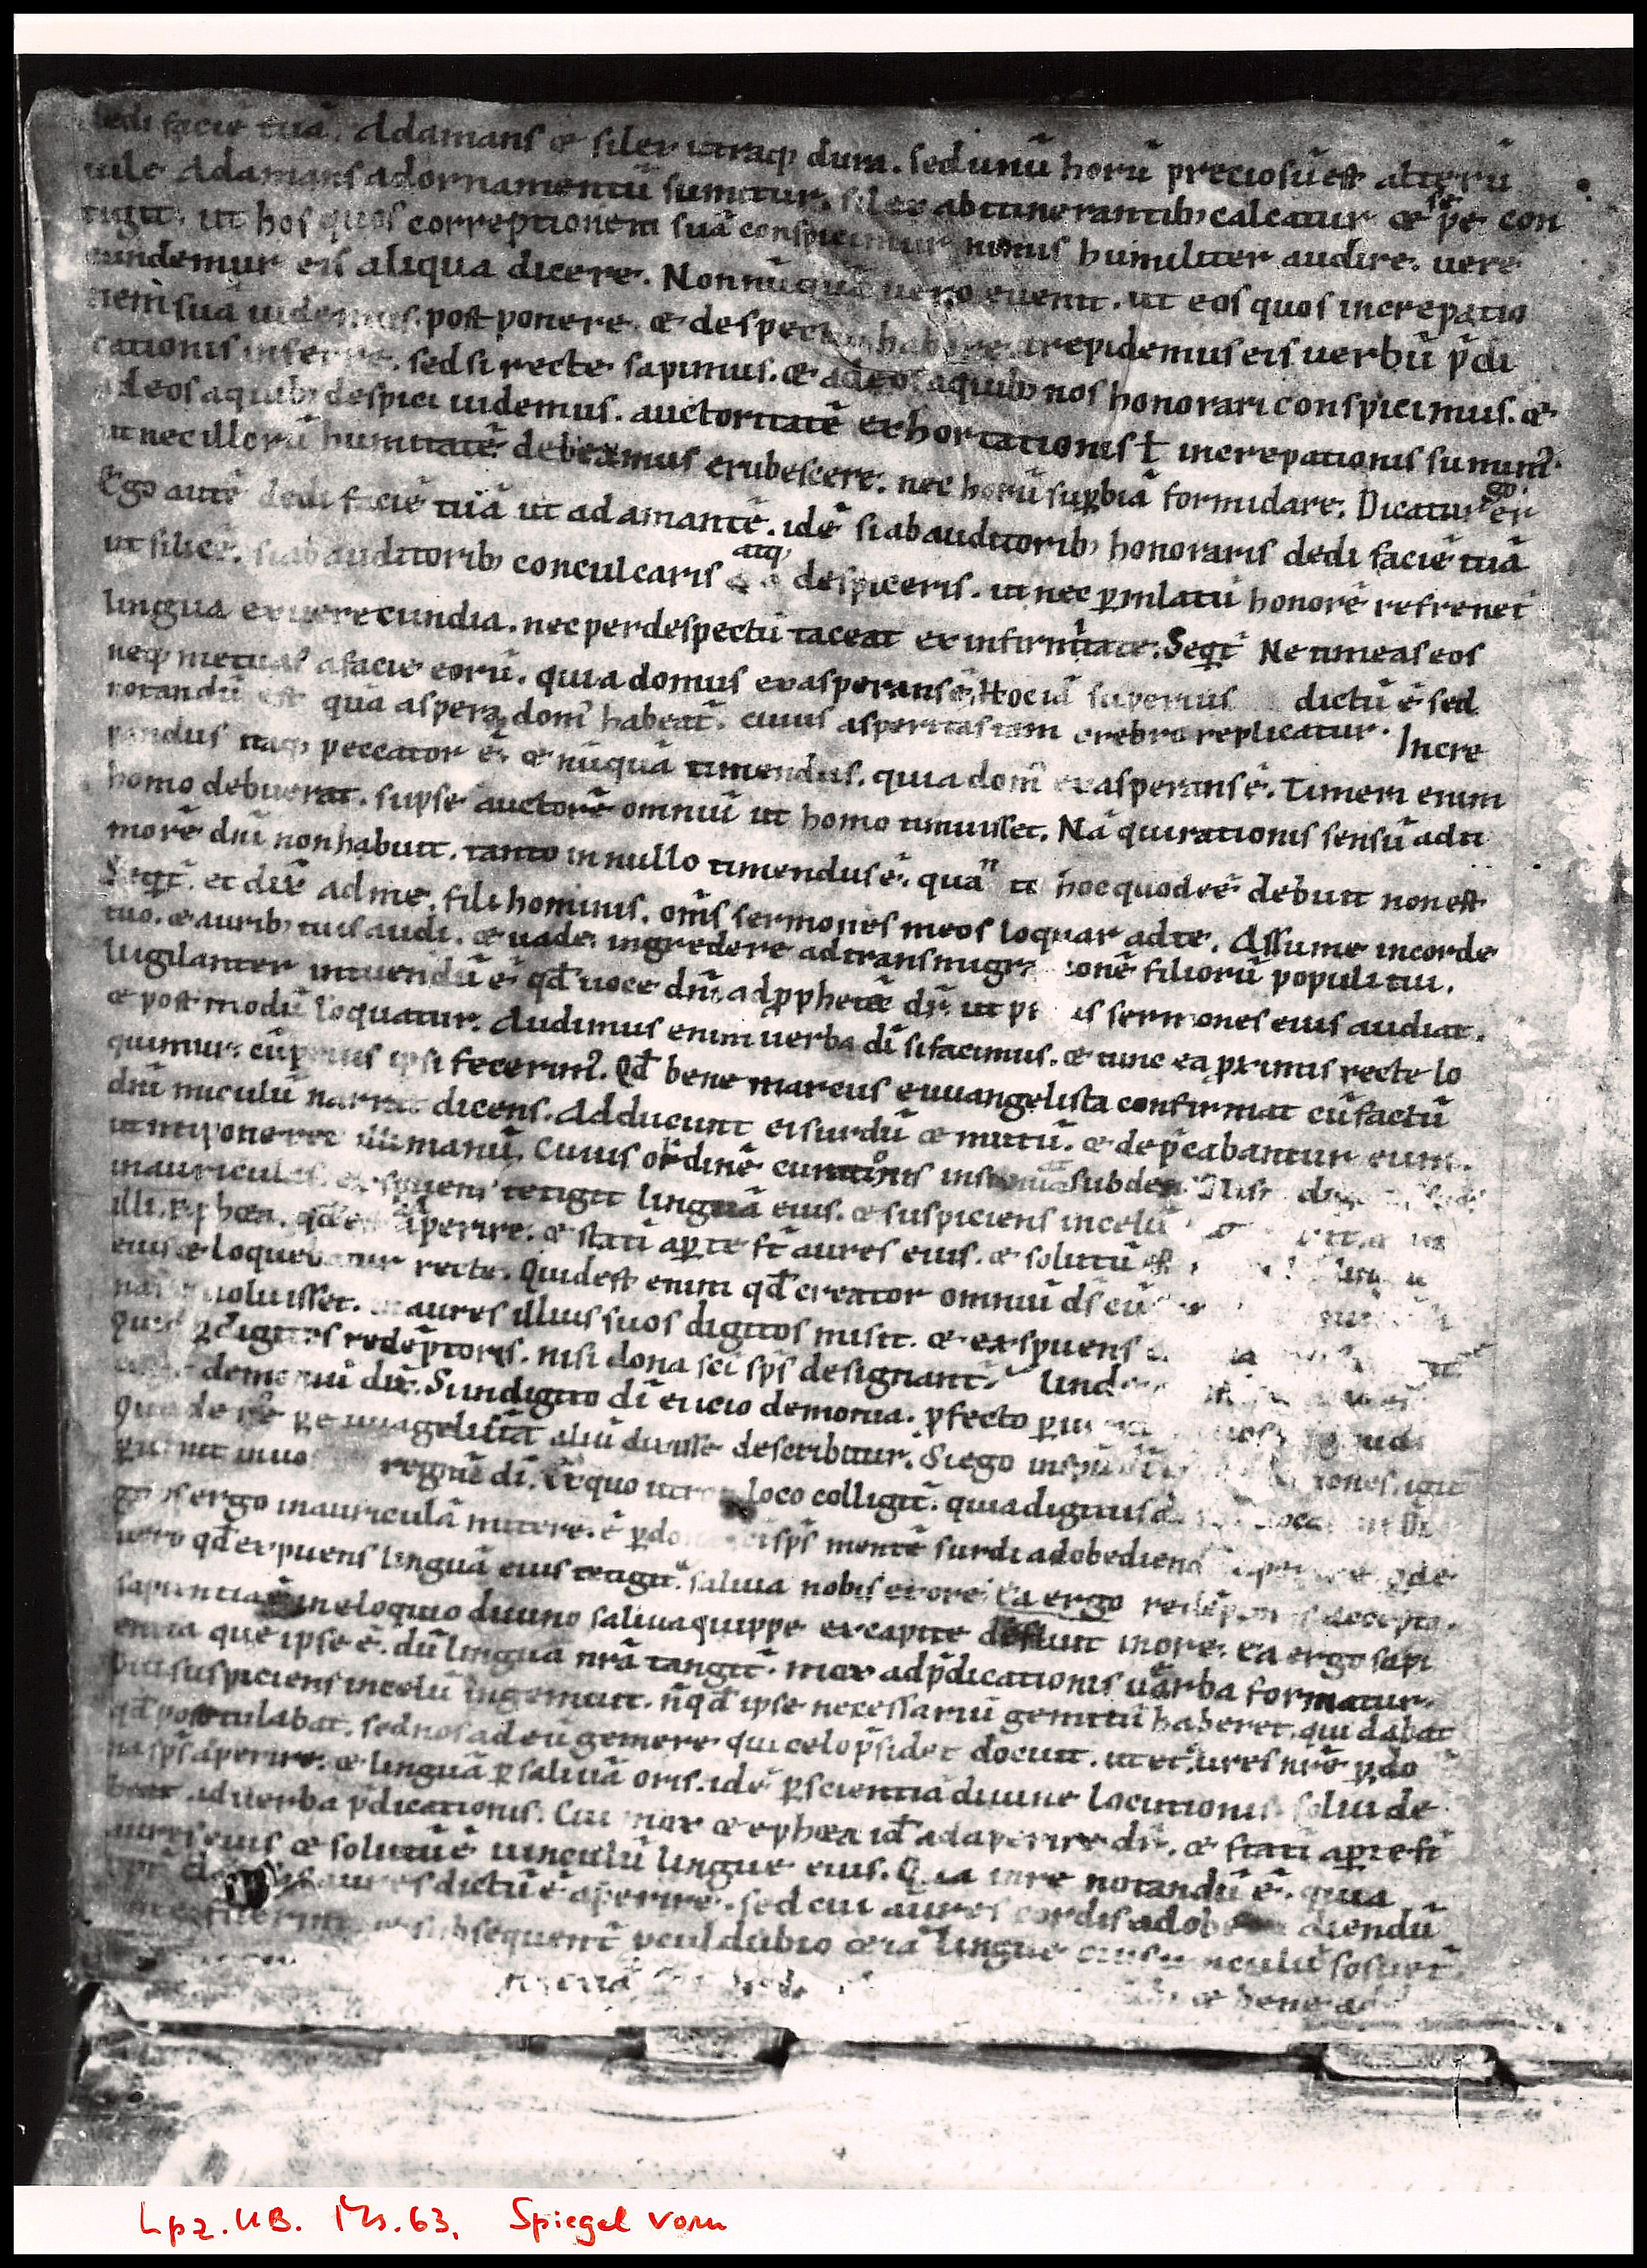 dedi faciē tuā. Adamans & silex utraq; dura. sed unū horū preciosū est alterū
uile Adamans ad ornamentū sumitur. silex ab itinerantib; calcatur & sepe con
tigit. ut hos quos correptionem suā conspicimur minus humiliter audire. uere
cundemur eis aliqua dicere. Nonnūquā uero euenit. ut eos quos increpatio
nem suā uidemus. post ponere. & despectum habere. trepidemus eis uerbū p̄di
cationis inferre. sed si recte sapimus. & ad eos a quib; nos honorari conspicimus. &
ad eos a quib; despici uidemus. auctoritatē exhortationis ł increpationis sumim̄.
ut nec illorū humitatē debeamus erubescere. nec horū sup̱biā formidare. Dicatur ergo
Ego autē dedi faciē tuā ut adamantē. idē si ab auditorib; honoraris dedi faciē tuā
ut silicē. si ab auditorib; conculcaris atq; despiceris. ut nec p̱ milatū honorē refreneť
lingua ex uerecundia. nec per despectū taceat ex infirmitate. Seqť Ne timeas eos
neq; metuas a facie eorū. quia domus exasperans ē. Hoc iā superius dictū ē sed
notandū est quā asperā dom̄ habeat. cuius asperitas iam crebro replicatur. Incre
pandus itaq; peccator ē. & nūquā timendus. quia dom̄ exasperans ē. Timeri enim
homo debuerat. si ipse auctorē omniū ut homo timuisset. Nā qui rationis sensū ad ti
morē dn̄i non habuit. tanto in nullo timendus ē. quāto hoc quod eē debuit non est
Seqť. et dix̄ ad me. fili hominis. om̄s sermones meos loquar ad te. Assume in corde
tuo. & aurib; tuis audi. & uade. ingredere ad transmigrationē filiorū populi tui.
Uigilanter intuendū ē qđ uoce dn̄i ad p̱phetā dr̄. ut prius sermones eius audiat.
& post modū loquatur. Audimus enim uerba dī si facimus. & tunc ea p̱ximis recte lo
quimur. cū prius ipsi fecerim̄. Qđ bene marcus euuangelista confirmat cū factū
dn̄i miculū narrat dicens. Adducunt ei surdū & mutū. & dep̄cabantur eum.
ut imponeret illi manū. Cuius ordinē curationis insinuat subdens Misit
in auriculas. exspuens tetigit linguā eius. & suspiciens in celū
illi. Ephœta. qđ est aperire. & statī ap̱te sť aures eius. & solutū est
eius & loquebatur recte. Quid est enim qđ creator omniū ds̄ cū
uoluisset. in aures illius suos digitos misit. & exspuens
Quid p̱ digitos redēptoris. nisi dona sc̄i sp̄s designantˀ Unde
demoniū dix̄. Si in digito dī eicio demonia. p̱fecto p̱uenit
Qua de re p̱ euuagelistā aliū dixisse describitur. Si ego in sp̄u dī ones. igit
p̱uenit in uos regnū dī. Ex quo utroq; loco colligiť. quia digitus
ergo in auriculā mittere. ē p̱ dona sc̄i sp̄s mentē surdi ad obediend
uero qđ expuens linguā eius tetigit. saliua nobis ex ore ca ergo redēptoris accepta.
sapientiae in eloquio diuino saliua quippe ex capite defluit in ore. Ea ergo sapi
entia que ipse ē. dū lingua nr̄a tangiť. mox ad p̄dicationis uerba formatur.
Qui suspiciens in celū ingemuit. ñ qđ ipse necessariū gemitū haberet. qui dabat
qđ postulabat. sed nos ad eū gemere qui celo p̄sidet docuit. ut et aures nr̄e p̱ do
na sp̄s aperire. & linguā p̱ saliuā oris. idē p̱ scientiā diuine locutionis solui de
beat. ad uerba p̄dicationis. Cui mox & ephœta iđ ad aperire dr̄. & statī ap̱te sť
aures eius & solutū ē uinculū lingue eius. Qua in re notandū ē. quia
aures dictū ē aperire. sed cui aures cordis ad obediendū
subsequent p̱culdubio & iā lingue eius uinculū soluit
& bene ad
Lpz. UB. Ms. 63, Spiegel vorn